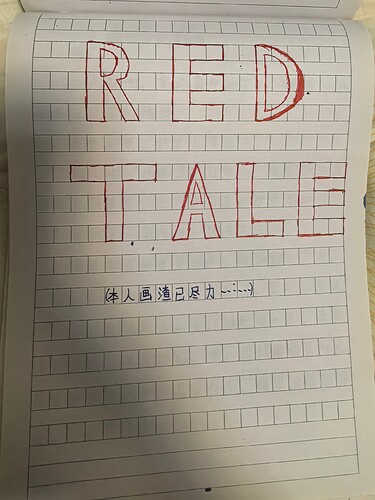 RED
TALE
(本人画渣已尽力……)